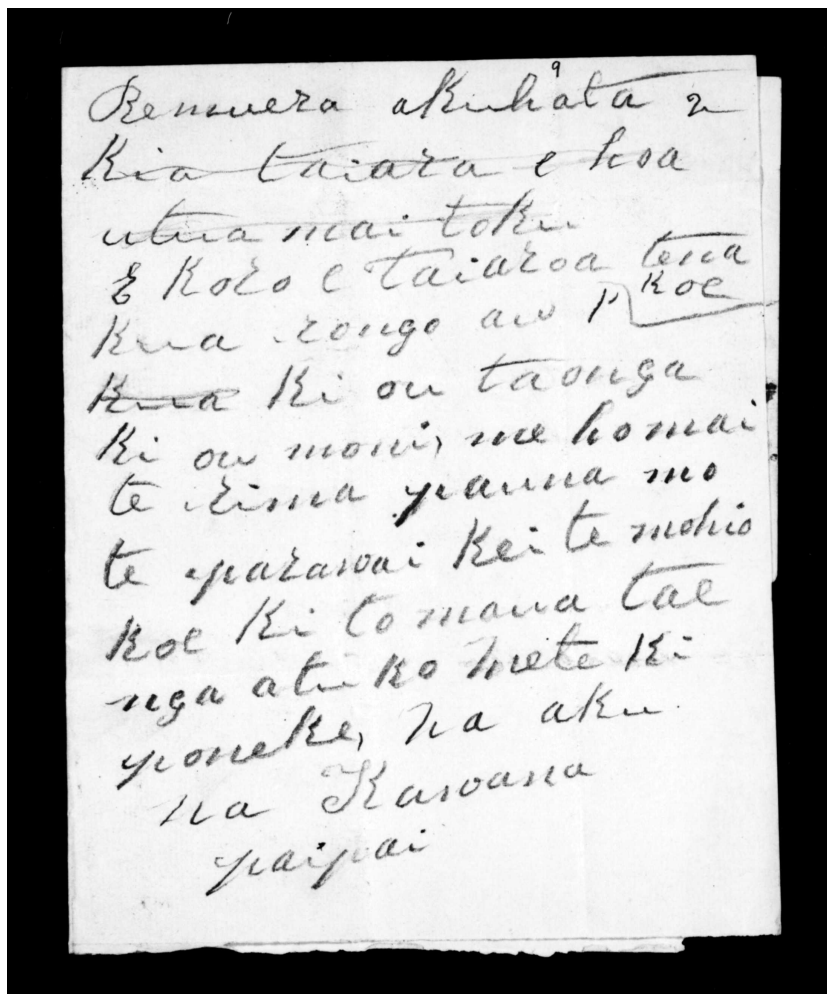 Remuera akuhata 2
9
Kia taiara e hoa
utua mai toku
E Koro e Taiaroa tena
Koe
Kua rongo au
Kua Ki ou taonga
Ki ou moni, me homai
te rima pauna mo
te parawai Kei te mohio
Koe Ki to maua tae
nga atu ko mete Ki
poneke, Na aku
na Kawana
paipai